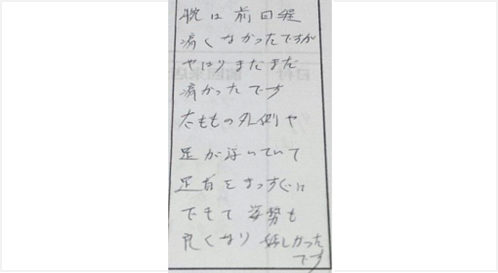 腕は前回程
痛くなかったですが
やはりまだまだ
痛かったです
太ももの外側や
足が浮いていて
足首をまっすぐに
できて姿勢も
良くなり嬉しかった
です